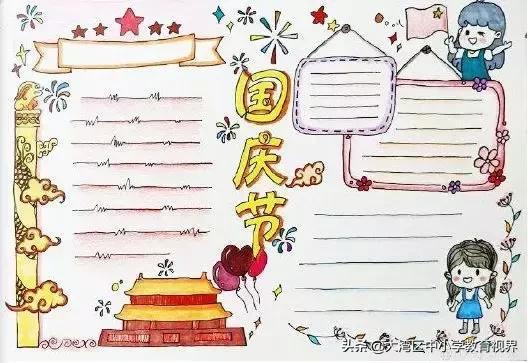 国庆节
头条@大湾区中小学教育视界